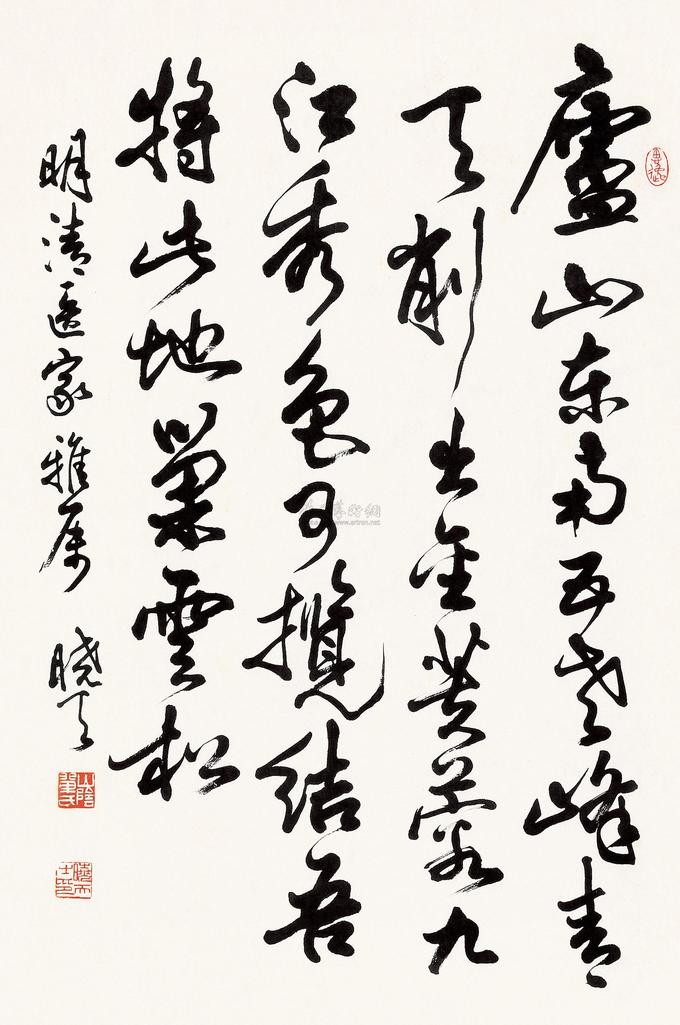 廬山東南五老峰青
天削出金芙蓉九
江秀色可攬結吾
將此地巢雲松
明清医家雅属 晓天
山陰
藝術網
www.artron.net